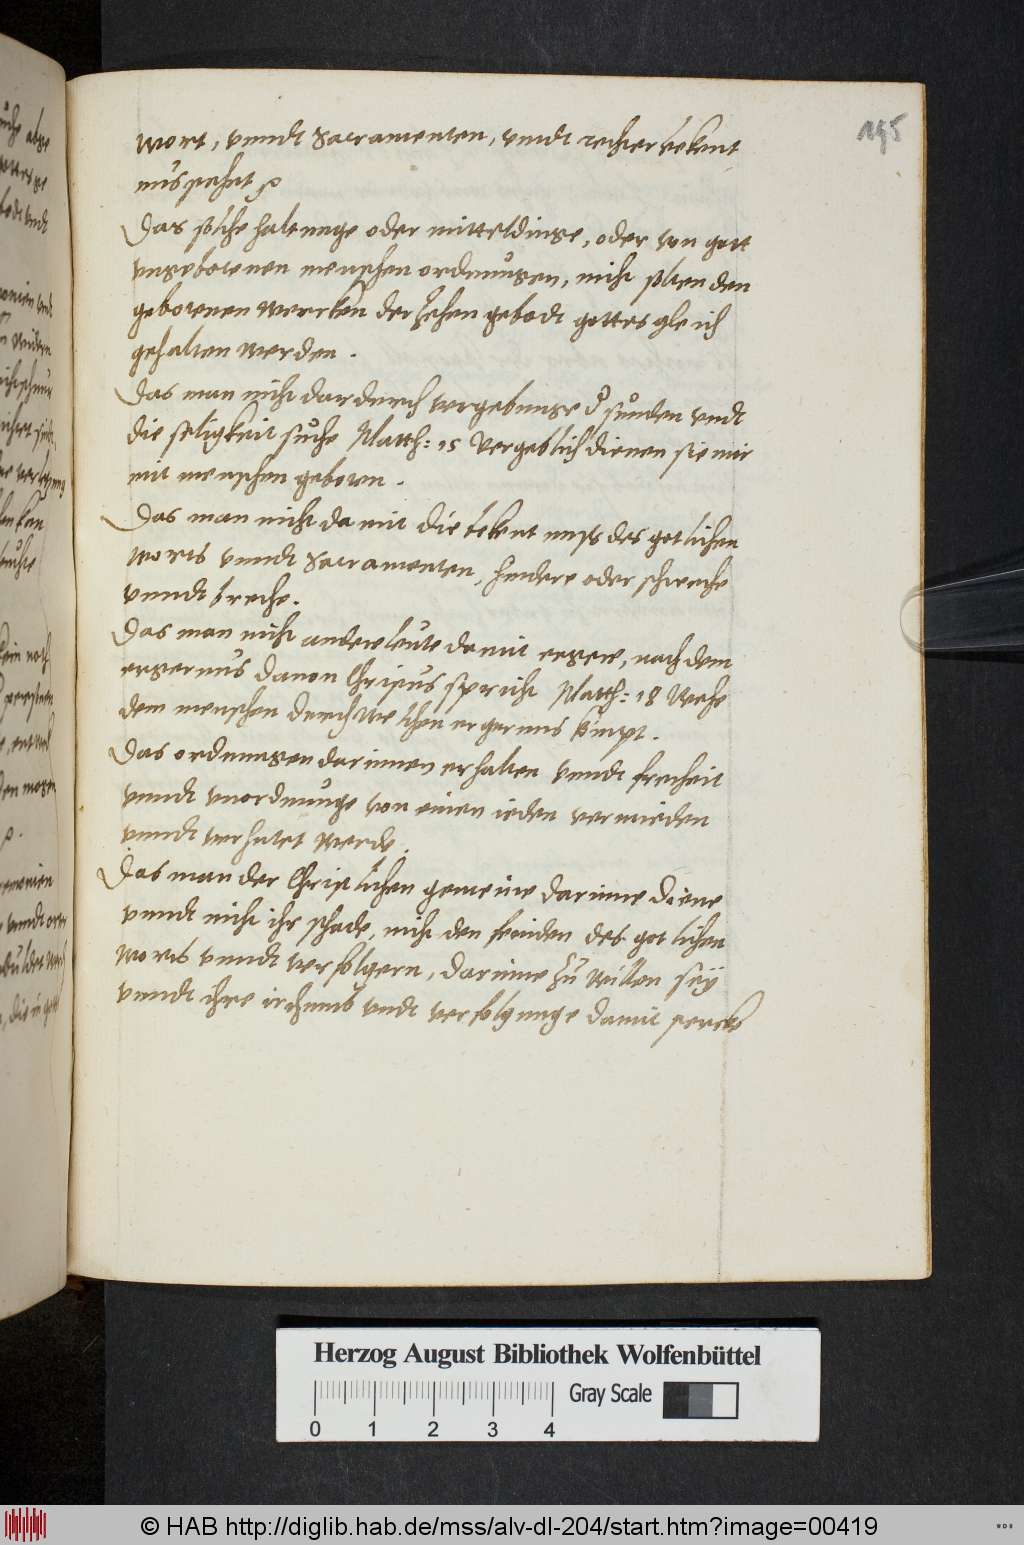 195
wort, vnndt Sacramenten, vnndt rechter bekent
nus stehet ꝛc
Das solche haltunge oder mitteldinge, oder von gott
vngebotenen menschen ordnungen, nicht sollen den
gebotenen wercken der zehen gebodt gottes gleich
gehalten werden.
Das man nicht dardurch vergebunge d sunden vndt
die seligkeit suche Matth: 15 Vergeblich dienen sie mir
mit menschen geboten.
Das man nicht damit die bekentnuss des gotlichen
worts vnndt Sacramenten, hindere oder schweche
vnndt breche.
Das man nicht andere leute damit ergere, nach dem
ergernus dauon Christus spricht Matth: 18 Wehe
dem menschen durch welchen ergernus kumpt.
Das ordnungen darinnen erhalten vnndt frecheit
vnndt vnordnunge von einen ieden vermieden
vnndt verhutet werde.
Das man der Christlichen gemeine darinne diene
vnndt nicht ihr schade, nicht den feinden des gotlichen
worts vnndt verfolgern, darinne zu willen sey
vnndt ihre irthumb vndt verfolgunge damit stercke
Herzog August Bibliothek Wolfenbüttel
0 1 2 3 4
Gray Scale
© HAB http://diglib.hab.de/mss/alv-dl-204/start.htm?image=00419